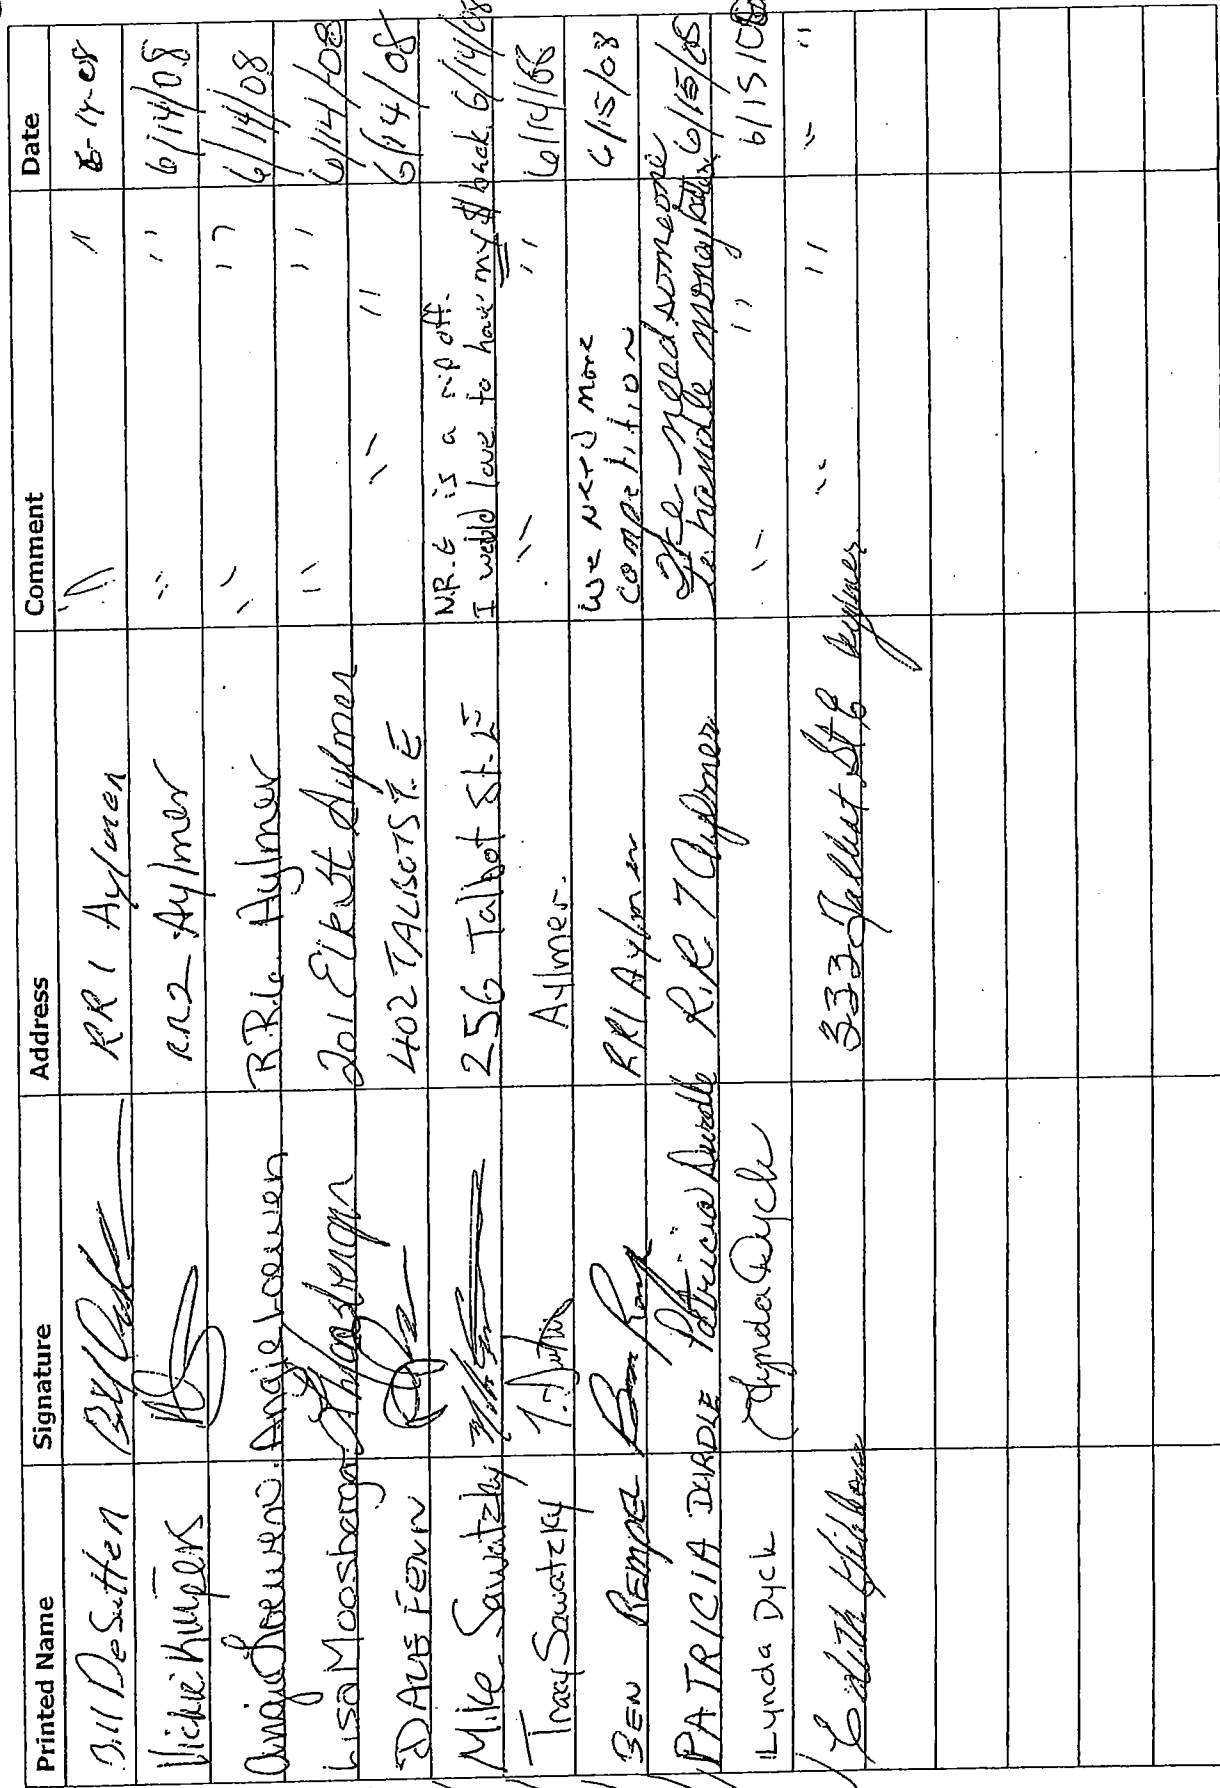 Printed Name Signature Address Comment Date
Bill DeSutter RR 1 Aylmer " " 6-14-08
Vickie Kuipers RR2 Aylmer " " 6/14/08
Angie Loewen Angie Loewen R.R.6 Aylmer " " 6/14/08
Lisa Moosberger 201 Elk St Aylmer " " 6/14/08
DALE FENN 402 TALBOT ST. E " " 6/14/08
Mike Sawatzky 256 Talbot St. E N.R.G is a rip off.
I would love to have my $ back 6/14/08
Tracy Sawatzky Aylmer. " " 6/14/08
BEN REMPEL RR1 Aylmer We NEED more
competition 6/15/08
PATRICIA DURDLE Patricia Durdle R.R. 7 Aylmer We need someone
to handle money better 6/15/08
Lynda Dyck Lynda Dyck " " 6/15/08
Edith 333 Talbot St E Aylmer " " " "